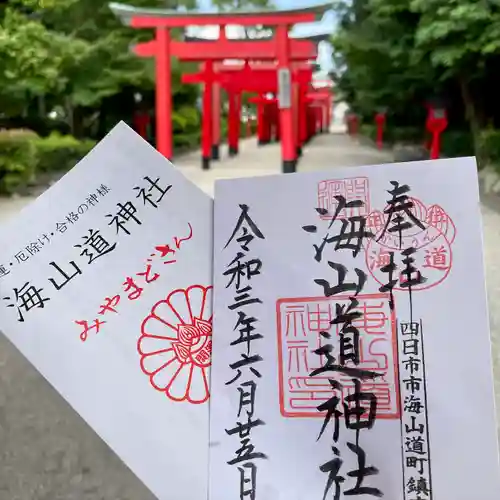 運・厄除け・合格の神様
海山道神社
みやまどさん
奉拝
海山道神社
令和三年六月廿五日
四日市市海山道町鎮